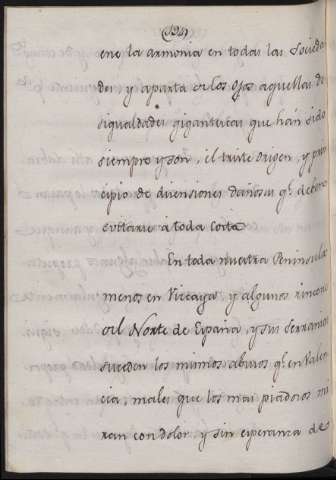 (194)
ene la armonia en todas las socieda
des, y aparta de los ojos aquellas de
sigualdades gigantescas que han sido
siempre y son, el triste origen, y prin
cipio de divensiones dañosas q.e deben
evitarse á toda costa.
En toda nuestra Peninsula
menos en Vizcaya, y algunos rincones
del Norte de España, y sus serranias
suceden los mismos abusos q.e en Valen
cia, males que los mas piadosos mi
ran con dolor, y sin esperanza de